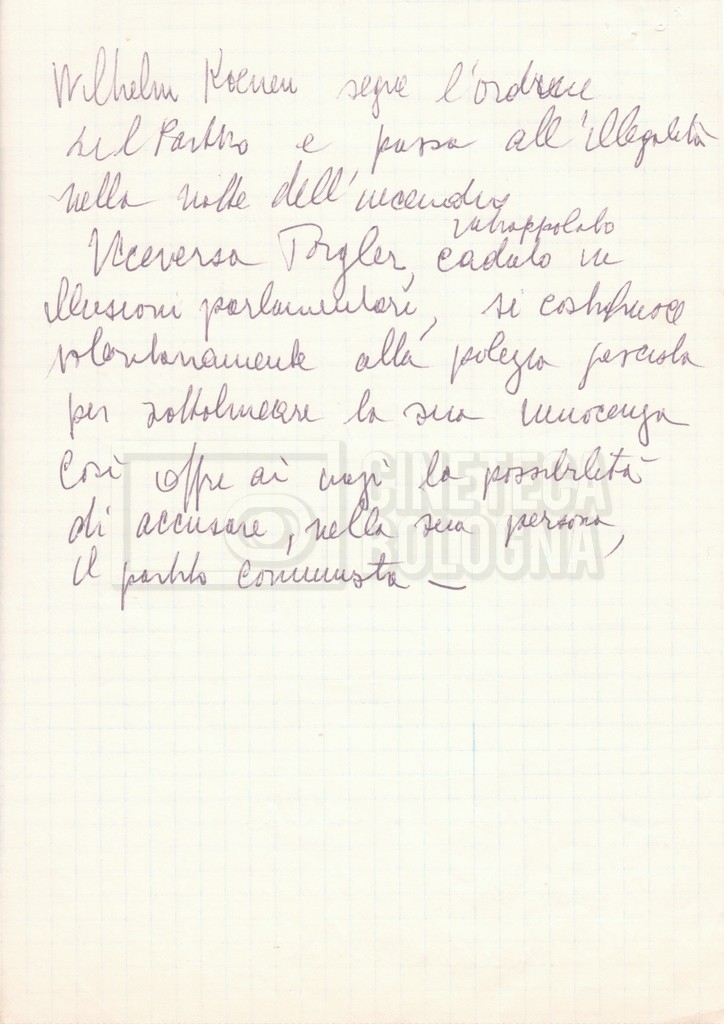 Wilhelm Koenen segue l'ordine
del Partito e passa all'illegalità
nella notte dell'incendio
intrappolato
Viceversa Torgler, caduto in
illusioni parlamentari, si costituisce
volontariamente alla polizia fascista
per sottolineare la sua innocenza
Così offre ai nazi la possibilità
di accusare, nella sua persona,
il partito comunista —
CINETECA
BOLOGNA